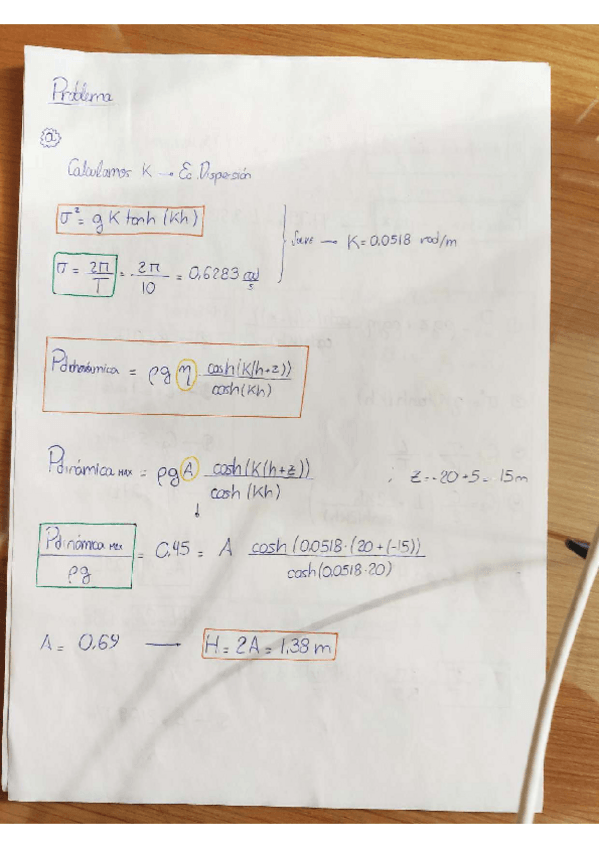 Problema
a
Calculamos K → Ec. Dispersión
σ² = g K tanh (Kh)
σ = 2π/T = 2π/10 = 0,6283 rad/s
Solve → K = 0,0518 rad/m
Pdinámica = ρg η · cosh(K(h+z))/cosh(Kh)
Pdinámica MAX = ρg A cosh(K(h+z))/cosh(Kh)
z = -20+5 = -15m
Pdinámica Max/ρg = 0,45 = A cosh(0,0518·(20+(-15))/cosh(0,0518·20)
A = 0,69 → H = 2A = 1,38 m